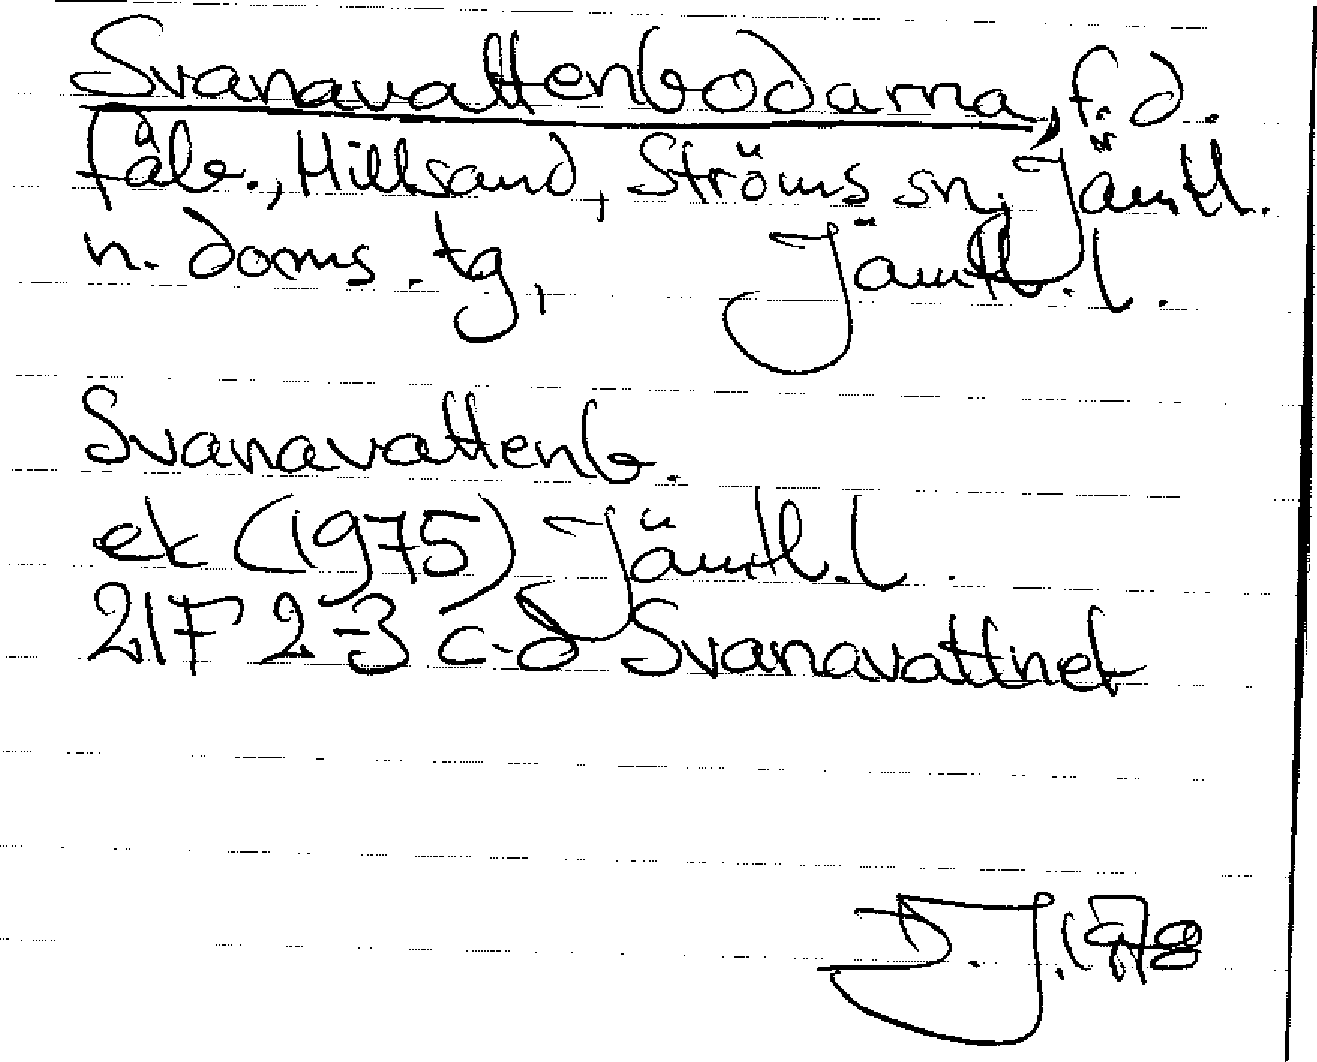 Svanavattenbodarna, f. d.
fäb., Hillsand, Ströms sn, Jämtl.
n. doms. tg, Jämtl. l.
Svanavattenb.
ek (1975) Jämtl. l.
21F 2-3 c-d Svanavattnet
D.J. 1978